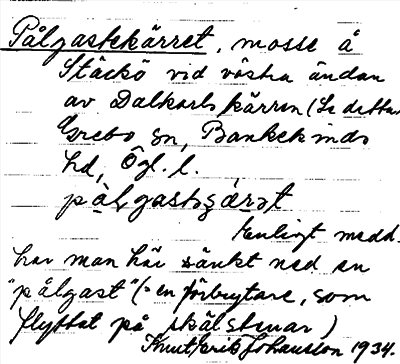 Pålgastekärret, mosse å
Stäckö vid västra ändan
av Dalkarlskärren (Se detta.
Grebo sn, Bankekinds
hd, Ögl. l.
pålgastəçärət
Enligt medd.
har man här sänkt ned en
"pålgast" (= en förbrytare, som
flyttat på skälstenar)
Knut Erik Johansson 1934.